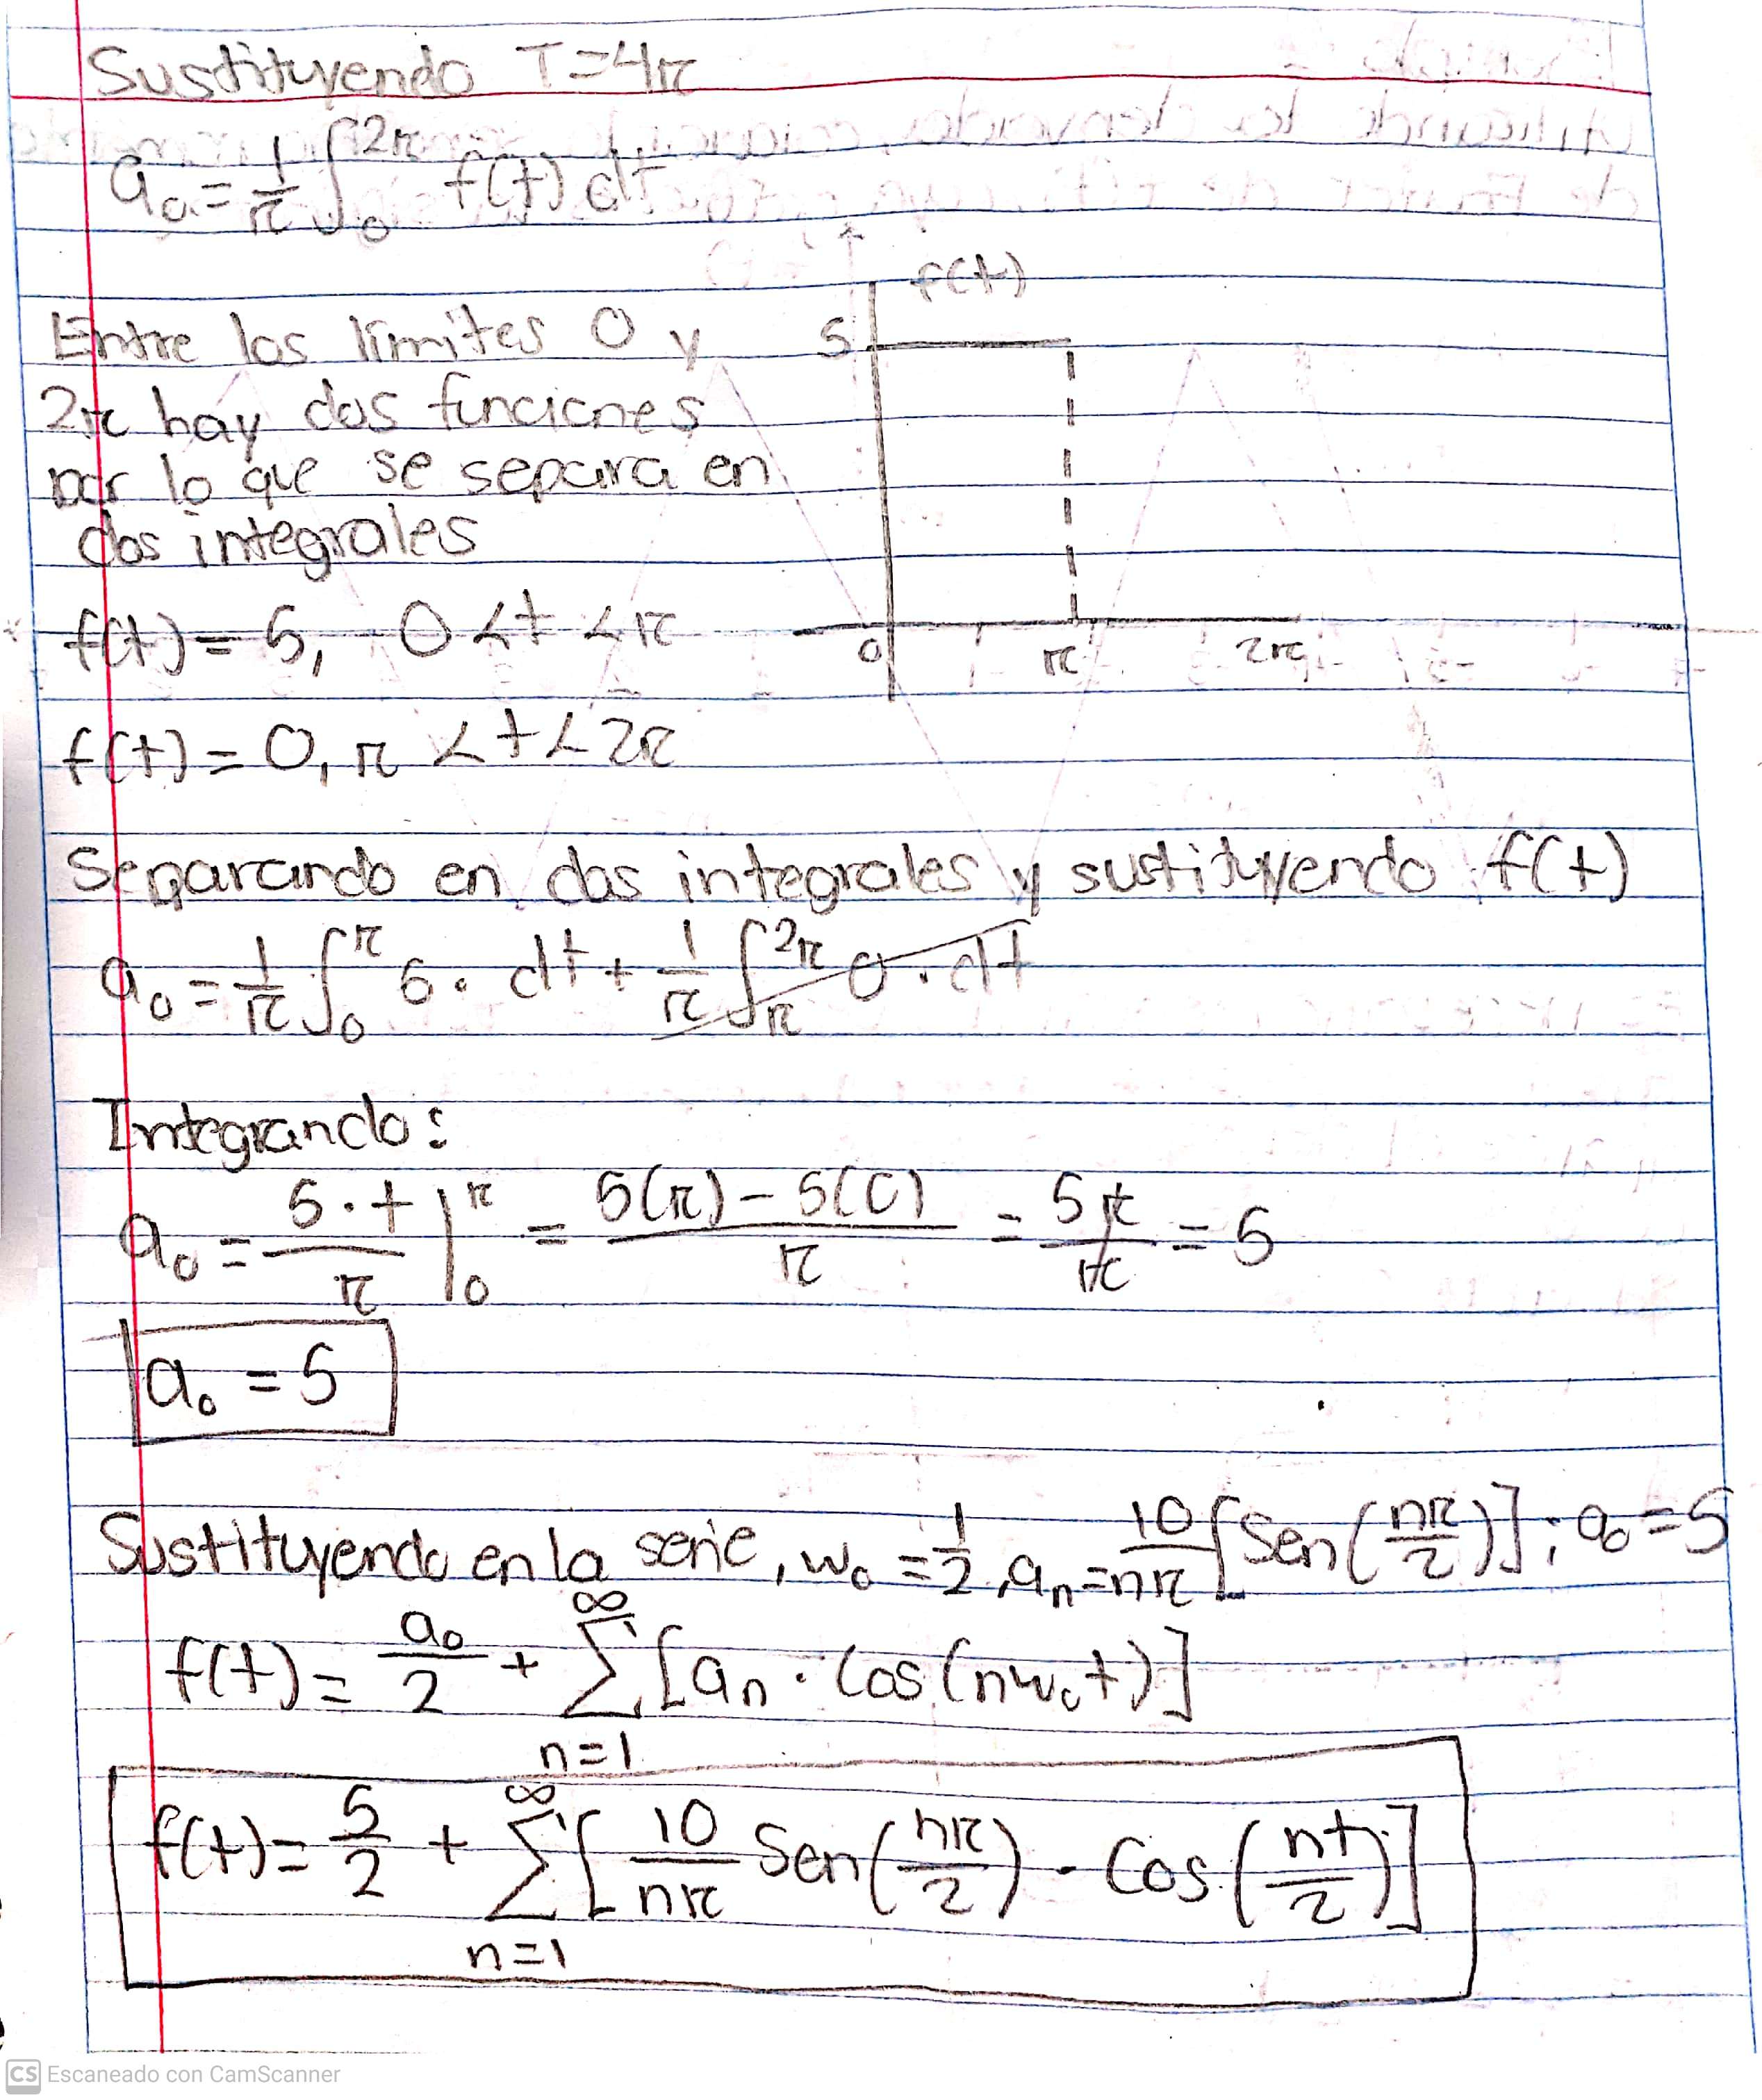 Sustituyendo T=4π
a₀ = 1/π ∫₀^2π f(t) dt
f(t)
5
0 π 2π
Entre los límites 0 y
2π hay dos funciones
por lo que se separa en
dos integrales
f(t) = 5, 0 < t < π
f(t) = 0, π < t < 2π
Separando en dos integrales y sustituyendo f(t)
a₀ = 1/π ∫₀^π 5 · dt + 1/π ∫π^2π 0 · dt
Integrando:
a₀ = 5·t/π |₀^π = (5(π) - 5(0))/π = 5π/π = 5
a₀ = 5
Sustituyendo en la serie, w₀ = 1/2, aₙ = 10/nπ [Sen(nπ/2)]; a₀ = 5
f(t) = a₀/2 + Σ_{n=1}^∞ [aₙ · Cos(nw₀t)]
f(t) = 5/2 + Σ_{n=1}^∞ [10/nπ Sen(nπ/2) · Cos(nt/2)]
CS Escaneado con CamScanner